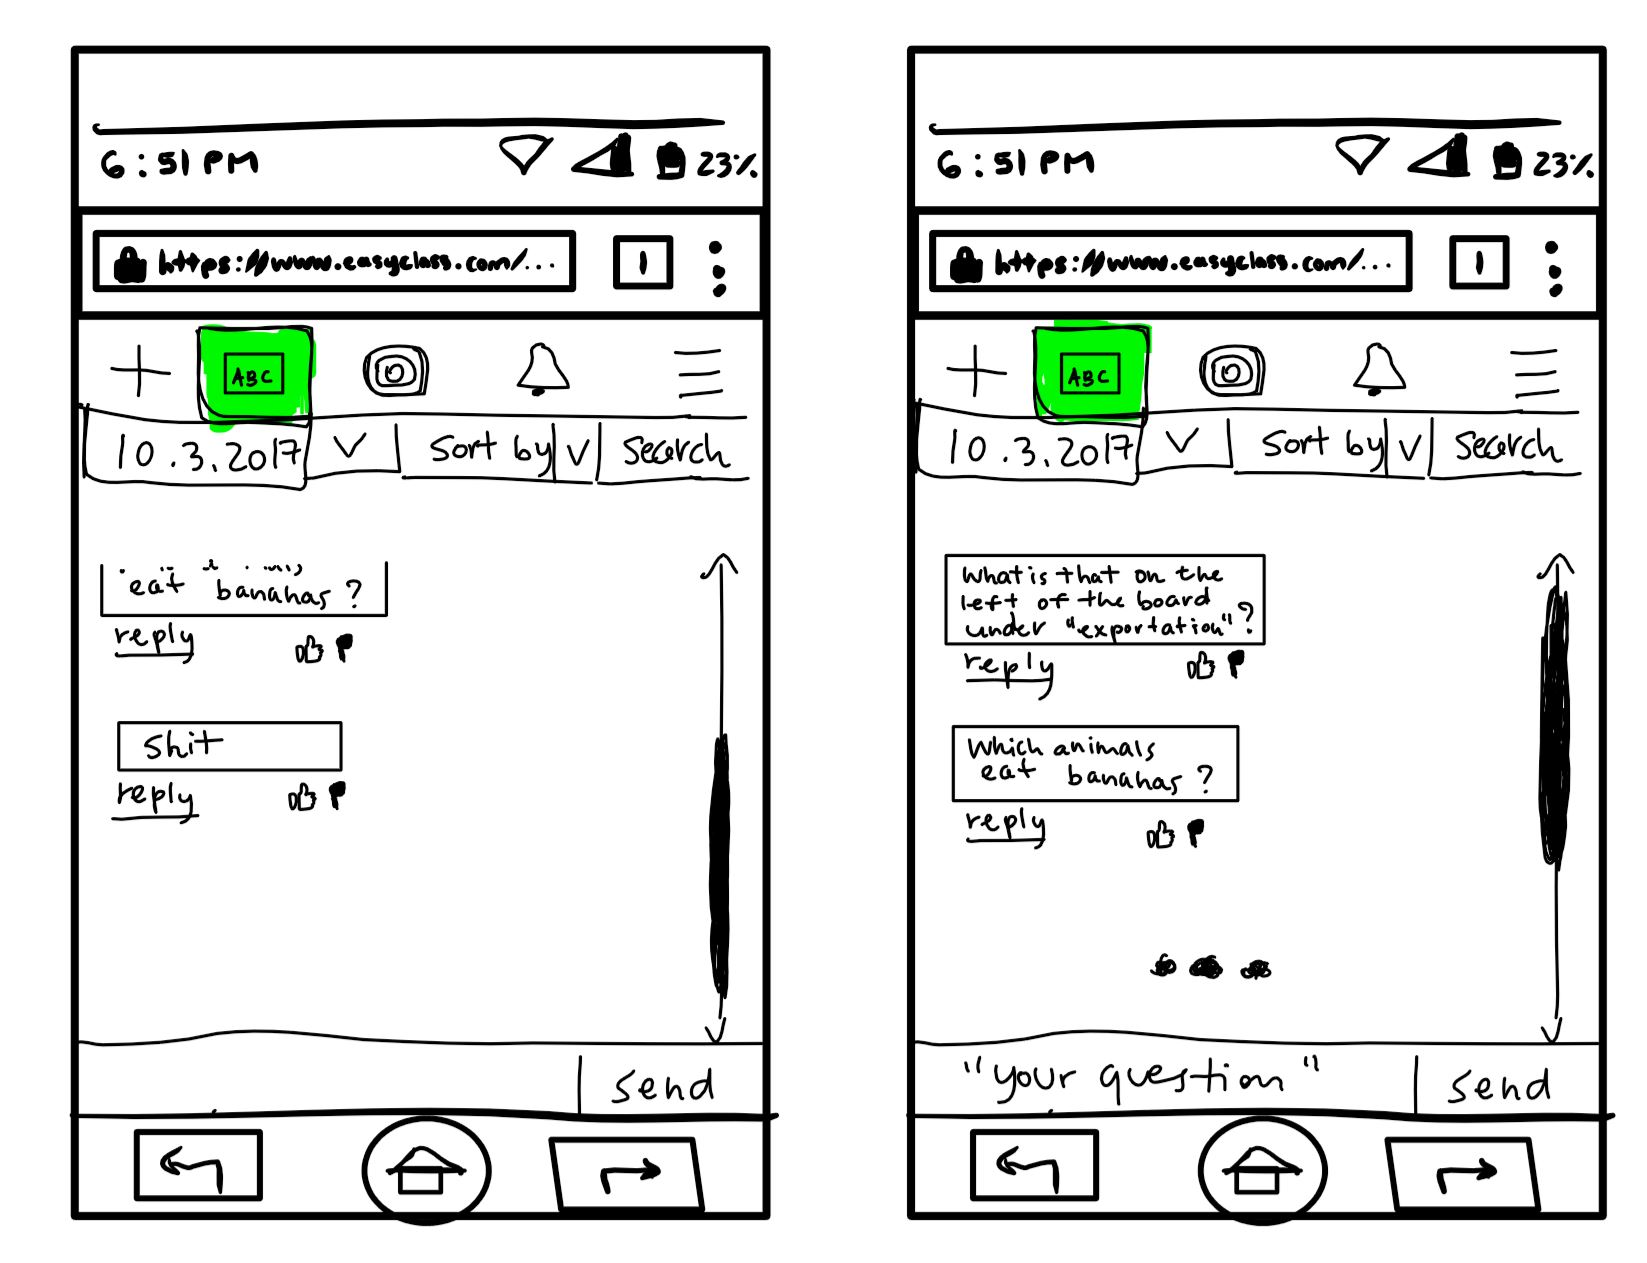 6:51 PM 23%
https://www.easyclass.com/... 1
ABC
10.3.2017 V Sort by V Search
eat bananas?
reply
shit
reply
send
6:51 PM 23%
https://www.easyclass.com/... 1
ABC
10.3.2017 V Sort by V Search
What is that on the
left of the board
under "exportation"?
reply
Which animals
eat bananas?
reply
"your question" send